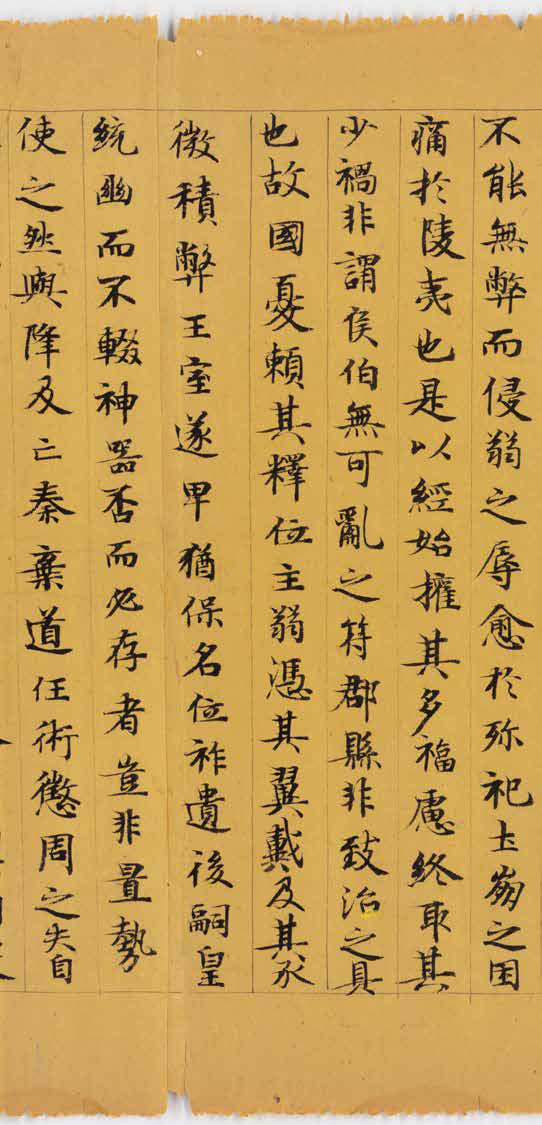 不能無弊而侵弱之辱愈於殄祀土崩之困
痛於陵夷也是以經始擁其多福慮終取其
少禍非謂侯伯無可亂之符郡縣非致治之具
也故國憂賴其釋位主弱憑其翼戴及其承
微積弊王室遂卑猶保名位祚遺後嗣皇
統幽而不輟神器否而必存者豈非置勢
使之然與降及亡秦棄道任術懲周之失自